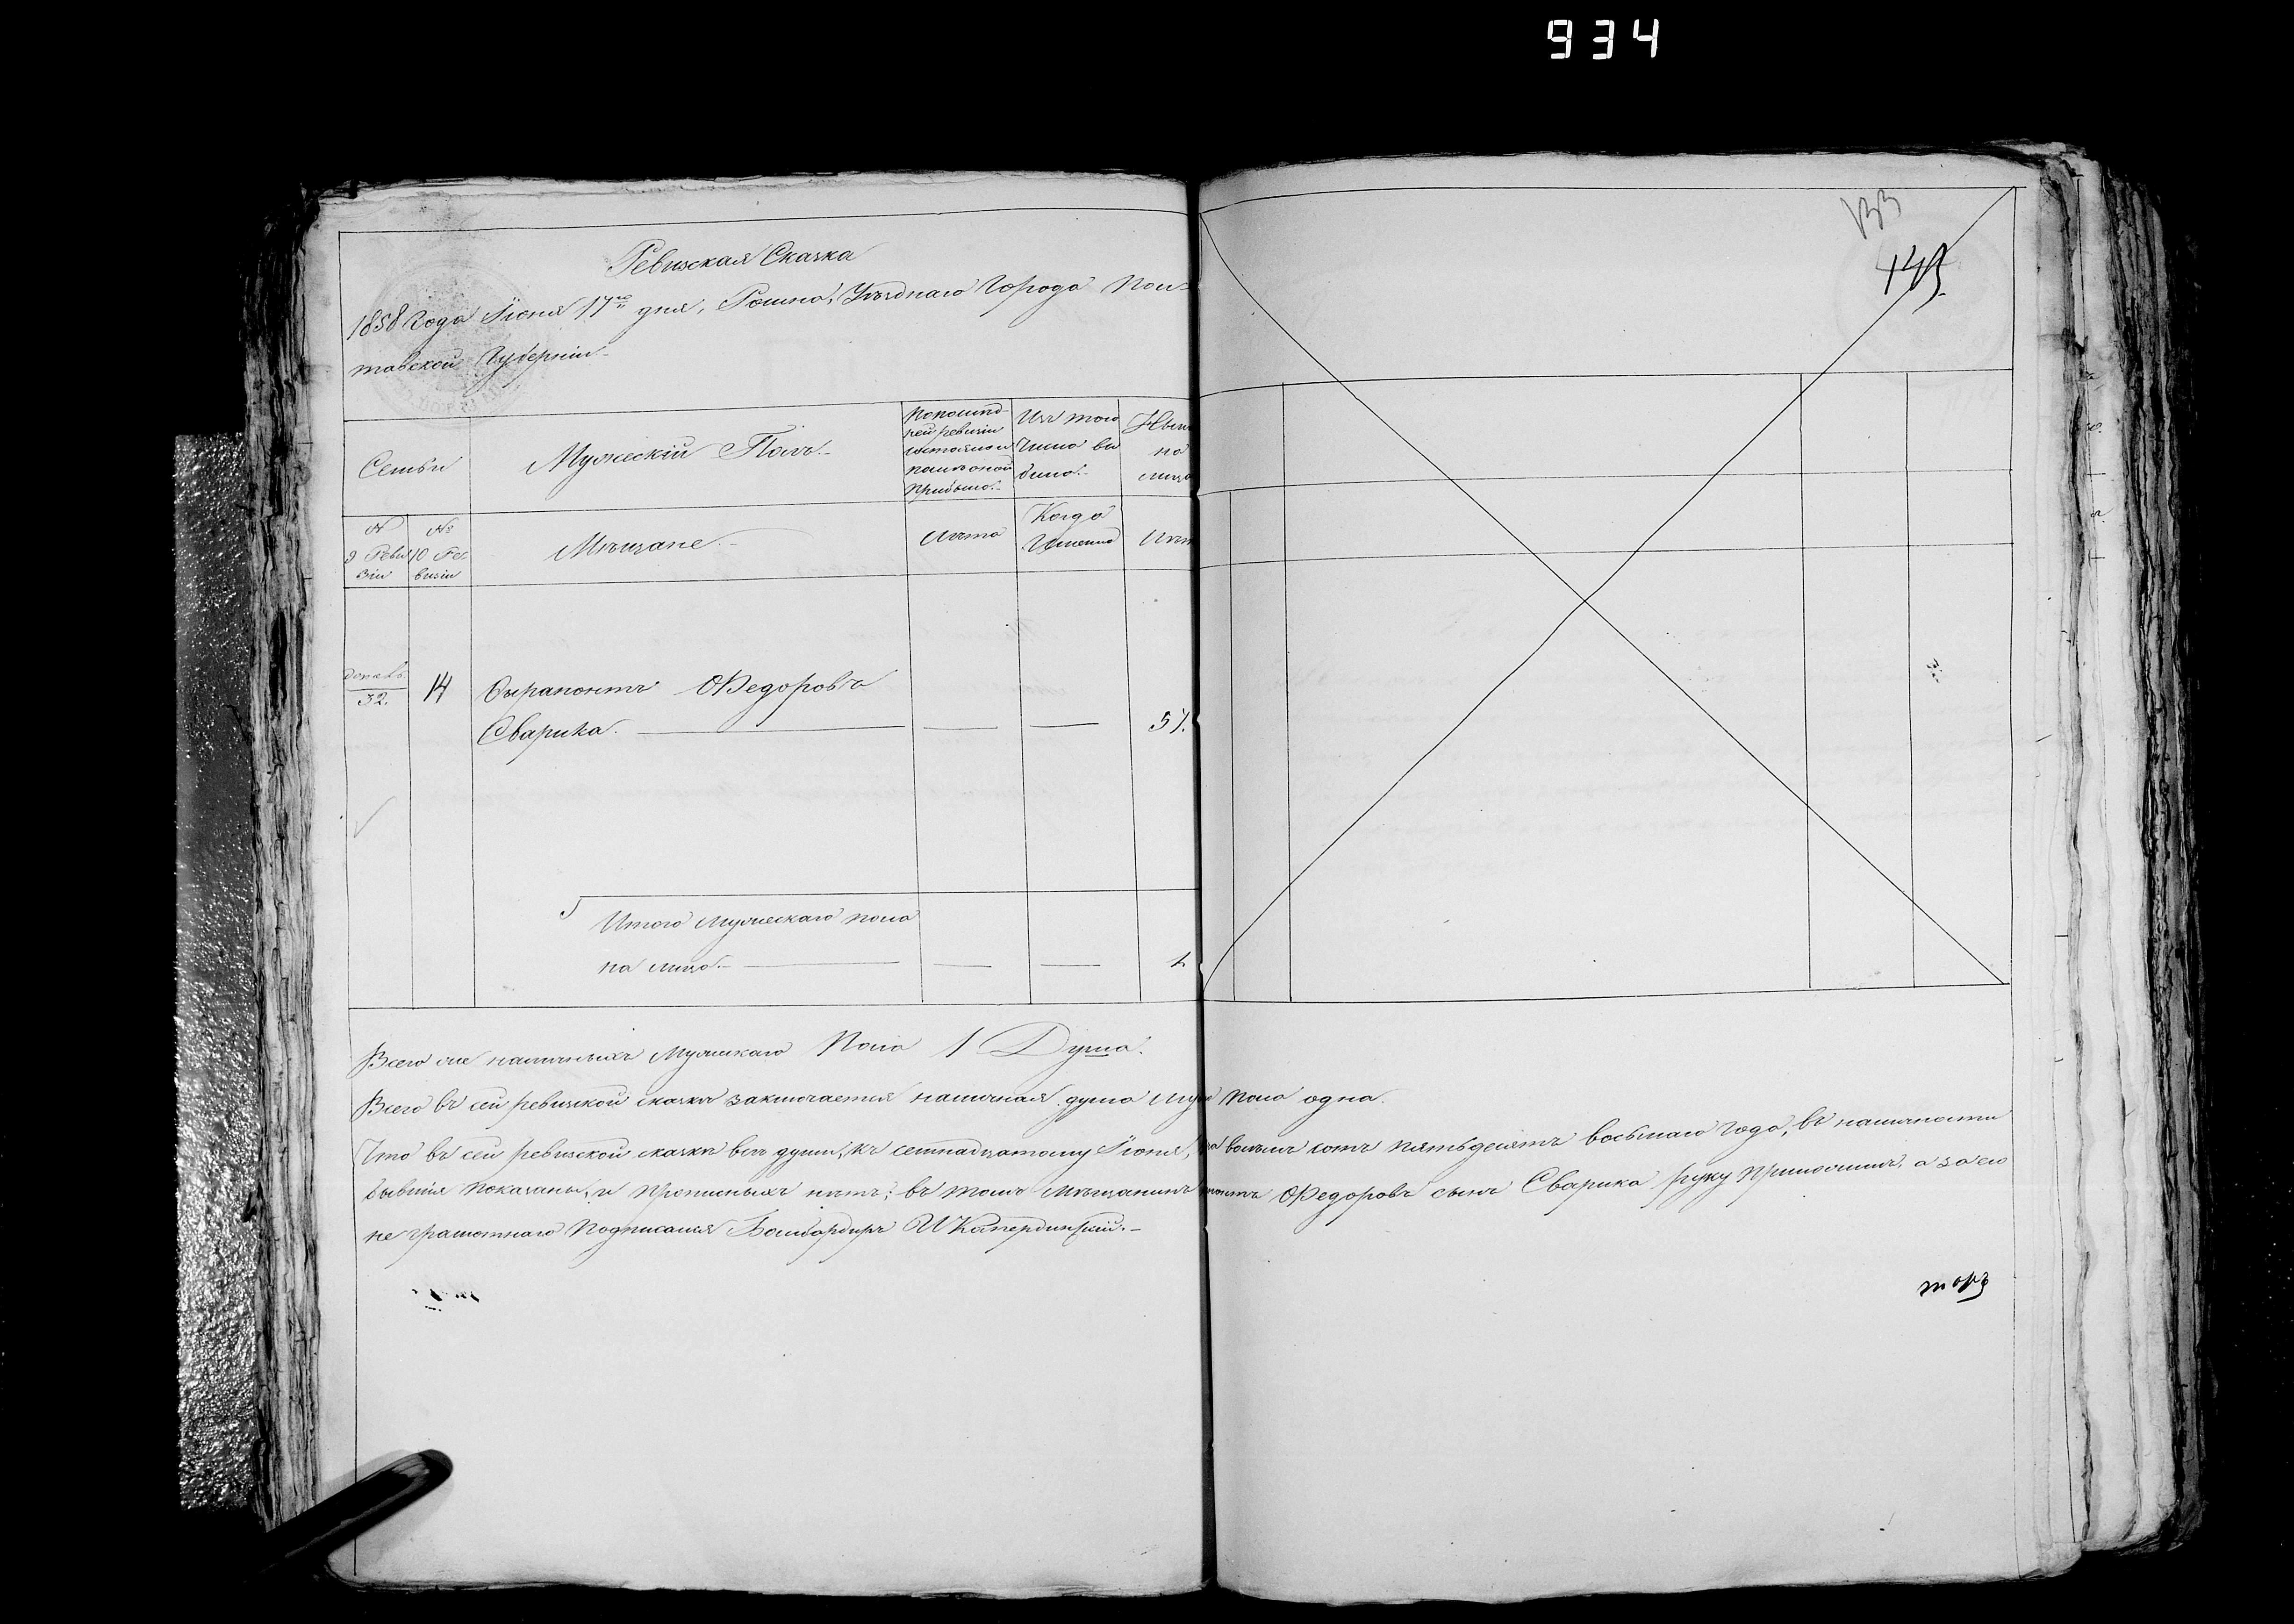 934
133
143
Ревизская Сказка
1858 Года Іюня 17го дня, Ромна, Уѣзднаго Города Пол=
тавской Губерніи
Семьи
Мужескій Полъ.
По послѣд-
ней ревизіи
состояло и
послѣ оной
прибыло.
Изъ того
числа вы
было.
Нынѣ
на
лицо
№
9 Реви
зіи
№
10 Ре
визіи
Мѣщане.
Лѣта
Когда
Именно
Лѣта
допол.
32.
14
Ѳедоровъ
Сварика.
51.
Итого мужескаго пола
на лицо.
1.
Всего же наличныхъ мужскаго Пола 1 Душа.
Всего въ сей ревизской сказкѣ заключается наличная душа муж пола одна.
Что въ сей ревизской сказкѣ всѣ души, къ семнадцатому Іюня, восемь сотъ пятьдесятъ восьмаго Года, въ наличности
бывшія показаны, и прописныхъ нѣтъ; въ томъ мѣщанинъ Ѳедоровъ сынъ Сварика руку приложилъ, а за его
не грамотнаго Подписался Бомбардиръ И
торъ